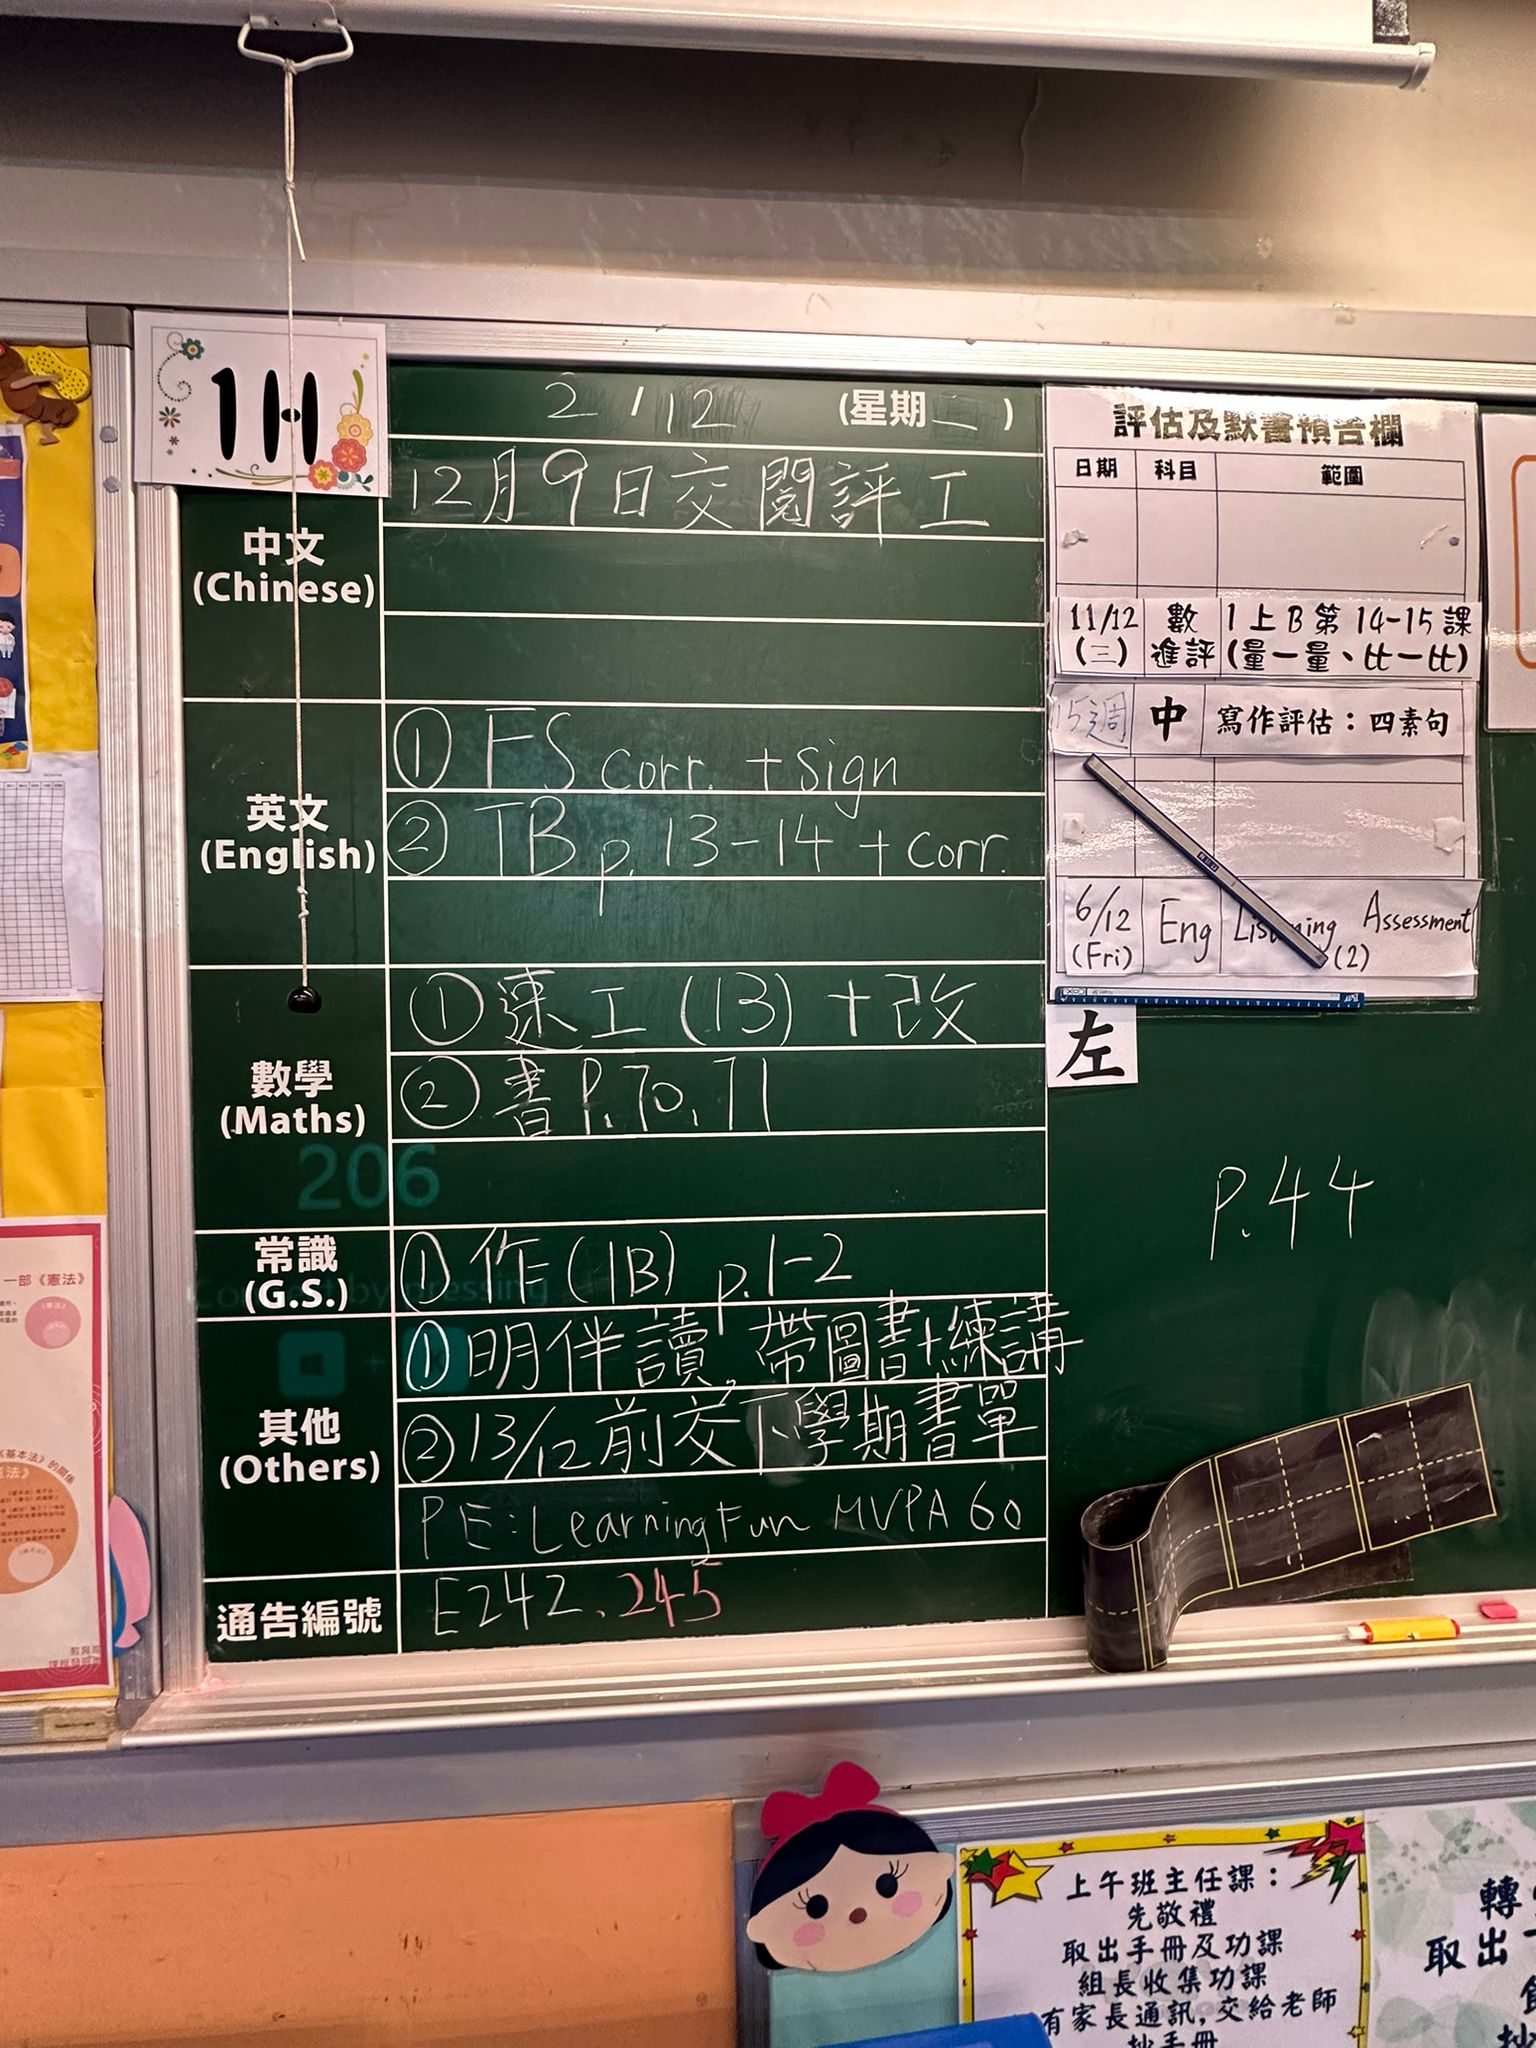 1H
2/12 (星期二)
中文
(Chinese)
12月9日交閱評工
英文
(English)
① FS corr. + sign
② TB p. 13-14 + corr.
數學
(Maths)
① 速工 (13) + 改
② 書 P.70, 71
206
常識
(G.S.)
① 作 (1B) p.1-2
其他
(Others)
① 明伴讀。帶圖書+練講
② 13/12 前交下學期書單
PE: Learning Fun MVPA 60
通告編號
E242, 245
評估及默書預告欄
日期 科目 範圍
11/12 (三) 數進評 1上B第14-15課 (量一量、比一比)
15週 中 寫作評估：四素句
6/12 (Fri) Eng Listening Assessment (2)
左
P.44
一部《憲法》
上午班主任課：
先敬禮
取出手冊及功課
組長收集功課
有家長通訊，交給老師
抄手冊
取出